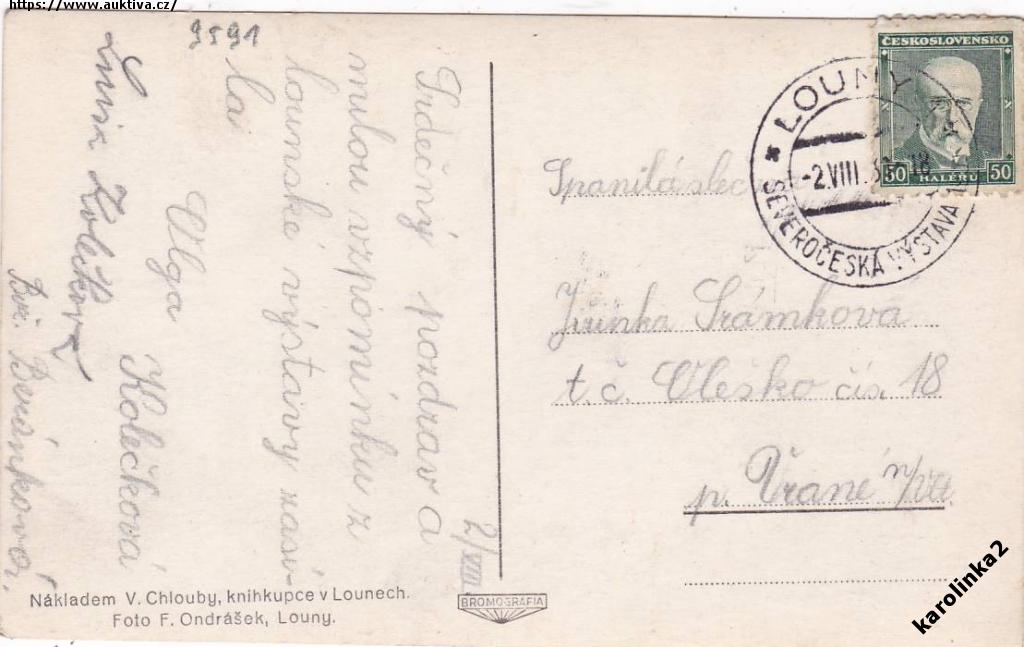 https://www.auktiva.cz/
9591
Srdečný pozdrav a
milou vzpomínku z
lounské výstavy zasí-
lá
Olga Kolečková
Kolečková
Bož. Beránková.
2/VIII
ČESKOSLOVENSKO
50 HALÉŘŮ 50
* LOUNY
-2.VIII.
SEVEROČESKÁ VÝSTAVA
Spanilá
Jiřinka Šrámkova
t. č. Oleško čís. 18
p. Vrané n/Vlt.
Nákladem V. Chlouby, knihkupce v Lounech.
Foto F. Ondrášek, Louny.
BROMOGRAFIA
karolinka2